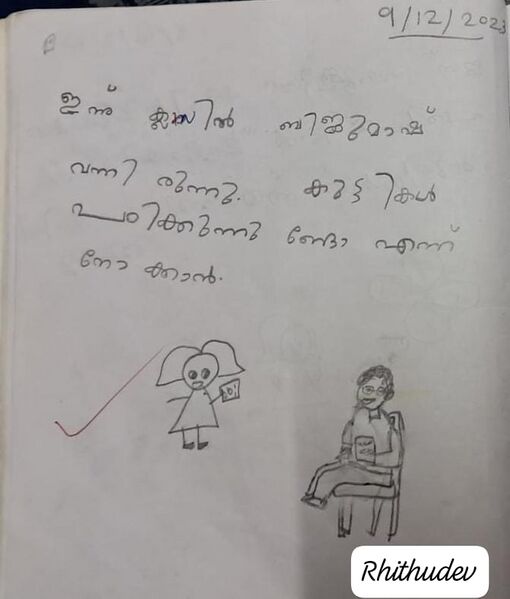 9/12/2023
ഇന്ന് ക്ലാസിൽ ബിജുമാഷ്
വന്നി രുന്നു. കുട്ടികൾ
പഠിക്കുന്നു ണ്ടോ എന്ന്
നോ ക്കാൻ.
Rhithudev